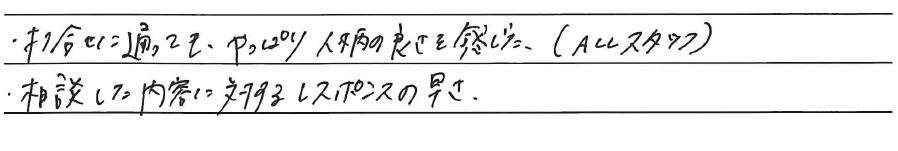 ・打合せに通っても、やっぱり人柄の良さを感じた、(ALLスタッフ)
・相談した内容に対するレスポンスの早さ.